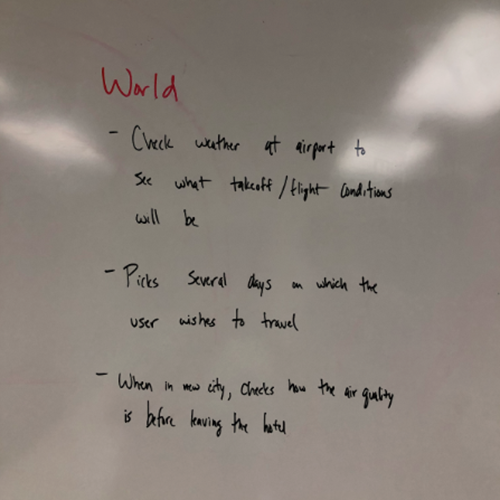 World
- Check weather at airport to
see what takeoff/flight conditions
will be
- Picks several days on which the
user wishes to travel
- When in new city, checks how the air quality
is before leaving the hotel